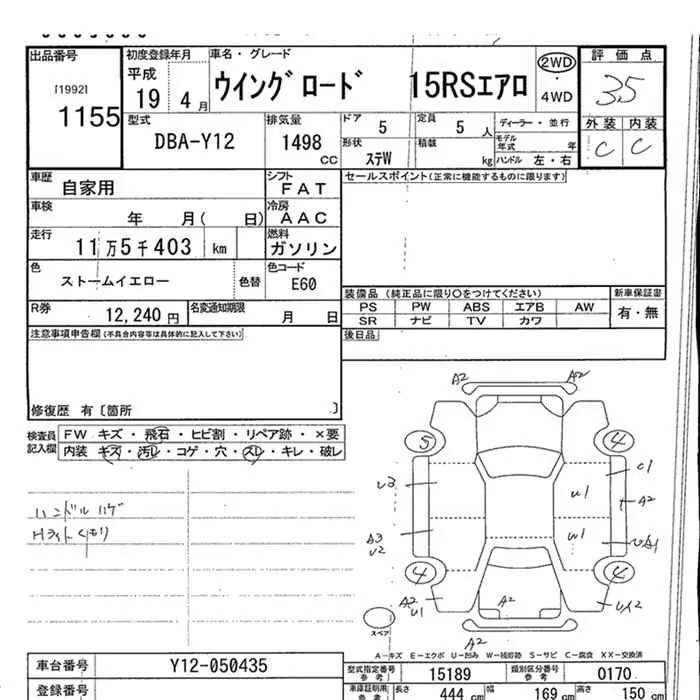 出品番号
[1992]
1155
初度登録年月
平成
19 4月
車名・グレード
ウイングロード 15RSエアロ
2WD
4WD
評価点
3.5
外装 内装
C C
型式
DBA-Y12
排気量
1498
CC
ドア
5
定員
5人
形状
ステW
積載
kg
ディーラー・並行
モデル年式 年
ハンドル 左・右
車歴
自家用
シフト
FAT
車検
年 月( 日)
冷房
AAC
走行
11万5千403 km
燃料
ガソリン
色
ストームイエロー
色替
色コード
E60
R券
12,240円
名変通知期限
月 日
セールスポイント(正常に機能するものに限ります)
装備品 (純正品に限り○をつけてください)
PS PW ABS エアB AW
SR ナビ TV カワ
新車保証書
有・無
後日品
注意事項申告欄(不具合内容等は具体的に記入して下さい)
修復歴 有〔箇所 〕
検査員記入欄
FW キズ・飛石・ヒビ割・リペア跡・×要
内装 キズ・汚レ・コゲ・穴・スレ・キレ・破レ
ハンドルハゲ
Hライトくもり
A2 A2
5 4
U3 U1 C1
A2
A3
U2
W1
4 4
A2
U1
A2
A2
スペア
A-キズ E-エクボ U-凹み W-補修跡 S-サビ C-腐食 XX-交換済
車台番号
Y12-050435
登録番号
型式指定番号
参考
15189
類別区分番号
参考
0170
車庫証明用
参考
長さ
444 cm
幅
169 cm
高さ
150 cm